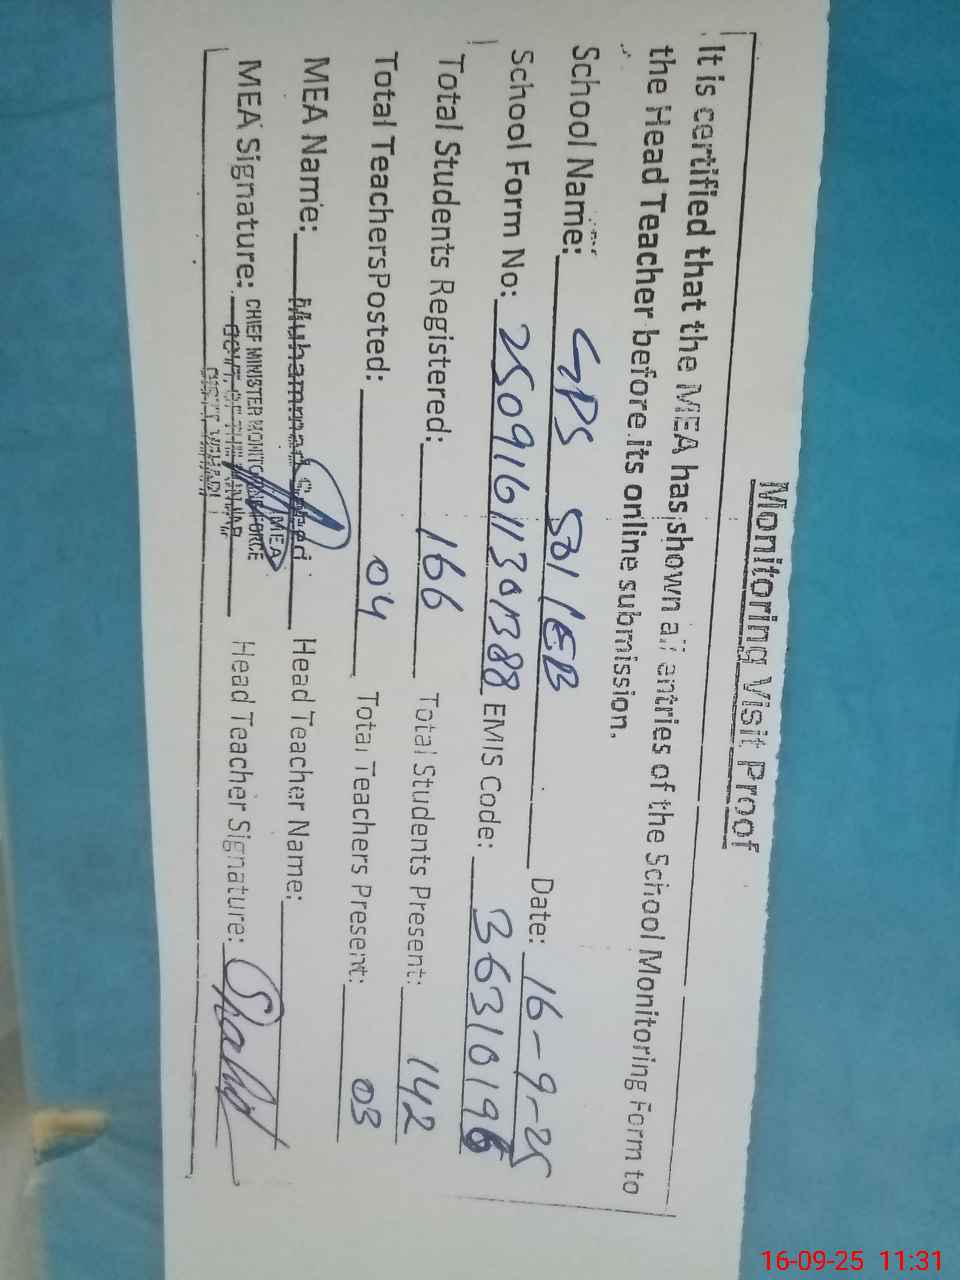 Monitoring Visit Proof
It is certified that the MEA has shown all entries of the School Monitoring Form to
the Head Teacher before its online submission.
School Name: GPS 501/EB Date: 16-9-25
School Form No: 25091611301388 EMIS Code: 36310196
Total Students Registered: 166 Total Students Present: 142
Total Teachers Posted: 04 Total Teachers Present: 03
MEA Name: Muhammad Head Teacher Name:
MEA Signature: Head Teacher Signature:
MEA
CHIEF MINISTER MONITORING FORCE
GOVT. OF THE PUNJAB
DISTT. VEHARI
16-09-25 11:31